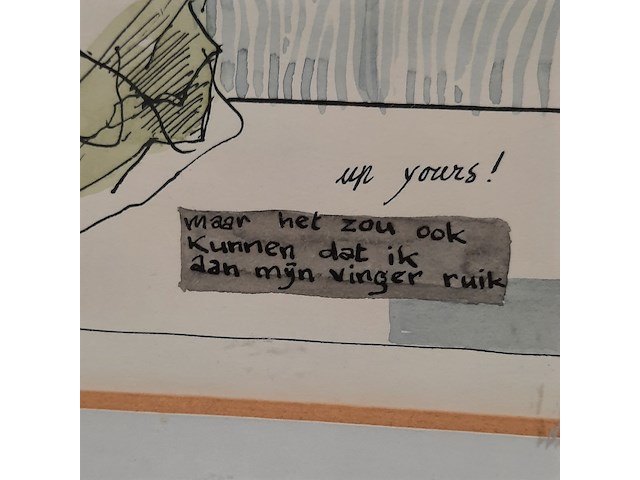 up yours!
maar het zou ook
kunnen dat ik
aan mijn vinger ruik